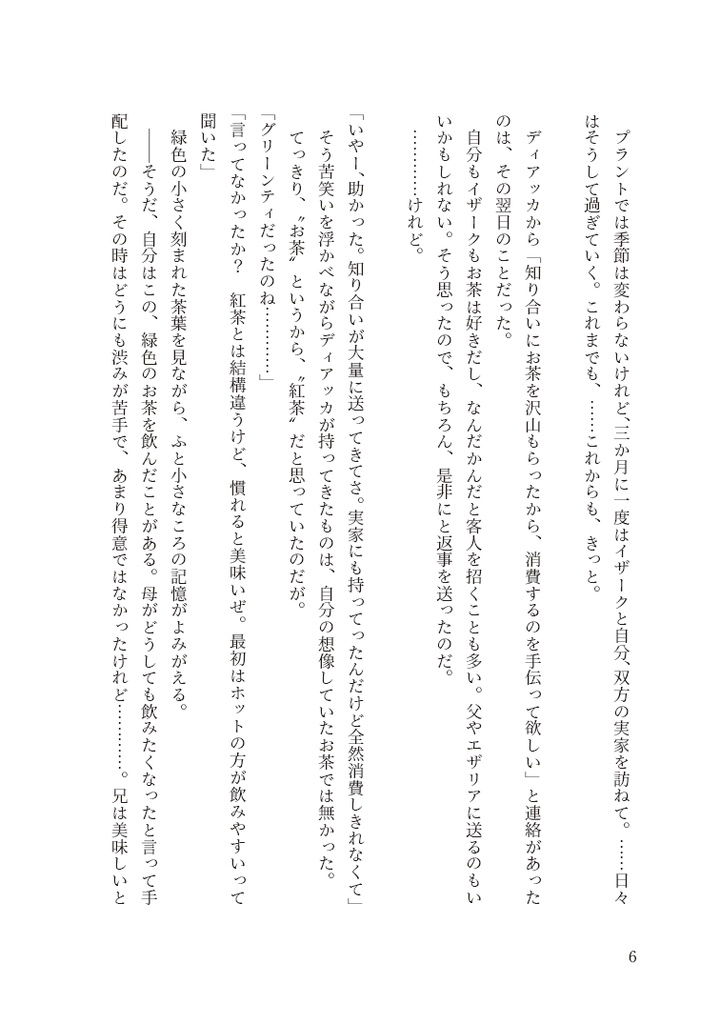 プラントでは季節は変わらないけれど、三か月に一度はイザークと自分、双方の実家を訪ねて。……日々
はそうして過ぎていく。これまでも、……これからも、きっと。
ディアッカから「知り合いにお茶を沢山もらったから、消費するのを手伝って欲しい」と連絡があった
のは、その翌日のことだった。
自分もイザークもお茶は好きだし、なんだかんだと客人を招くことも多い。父やエザリアに送るのもい
いかもしれない。そう思ったので、もちろん、是非にと返事を送ったのだ。
…………けれど。
「いやー、助かった。知り合いが大量に送ってきてさ。実家にも持ってったんだけど全然消費しきれなくて」
そう苦笑いを浮かべながらディアッカが持ってきたものは、自分の想像していたお茶では無かった。
てっきり、〝お茶〟というから、〝紅茶〟だと思っていたのだが。
「グリーンティだったのね…………」
「言ってなかったか?　紅茶とは結構違うけど、慣れると美味いぜ。最初はホットの方が飲みやすいって
聞いた」
緑色の小さく刻まれた茶葉を見ながら、ふと小さなころの記憶がよみがえる。
――そうだ、自分はこの、緑色のお茶を飲んだことがある。母がどうしても飲みたくなったと言って手
配したのだ。その時はどうにも渋みが苦手で、あまり得意ではなかったけれど…………。兄は美味しいと
6